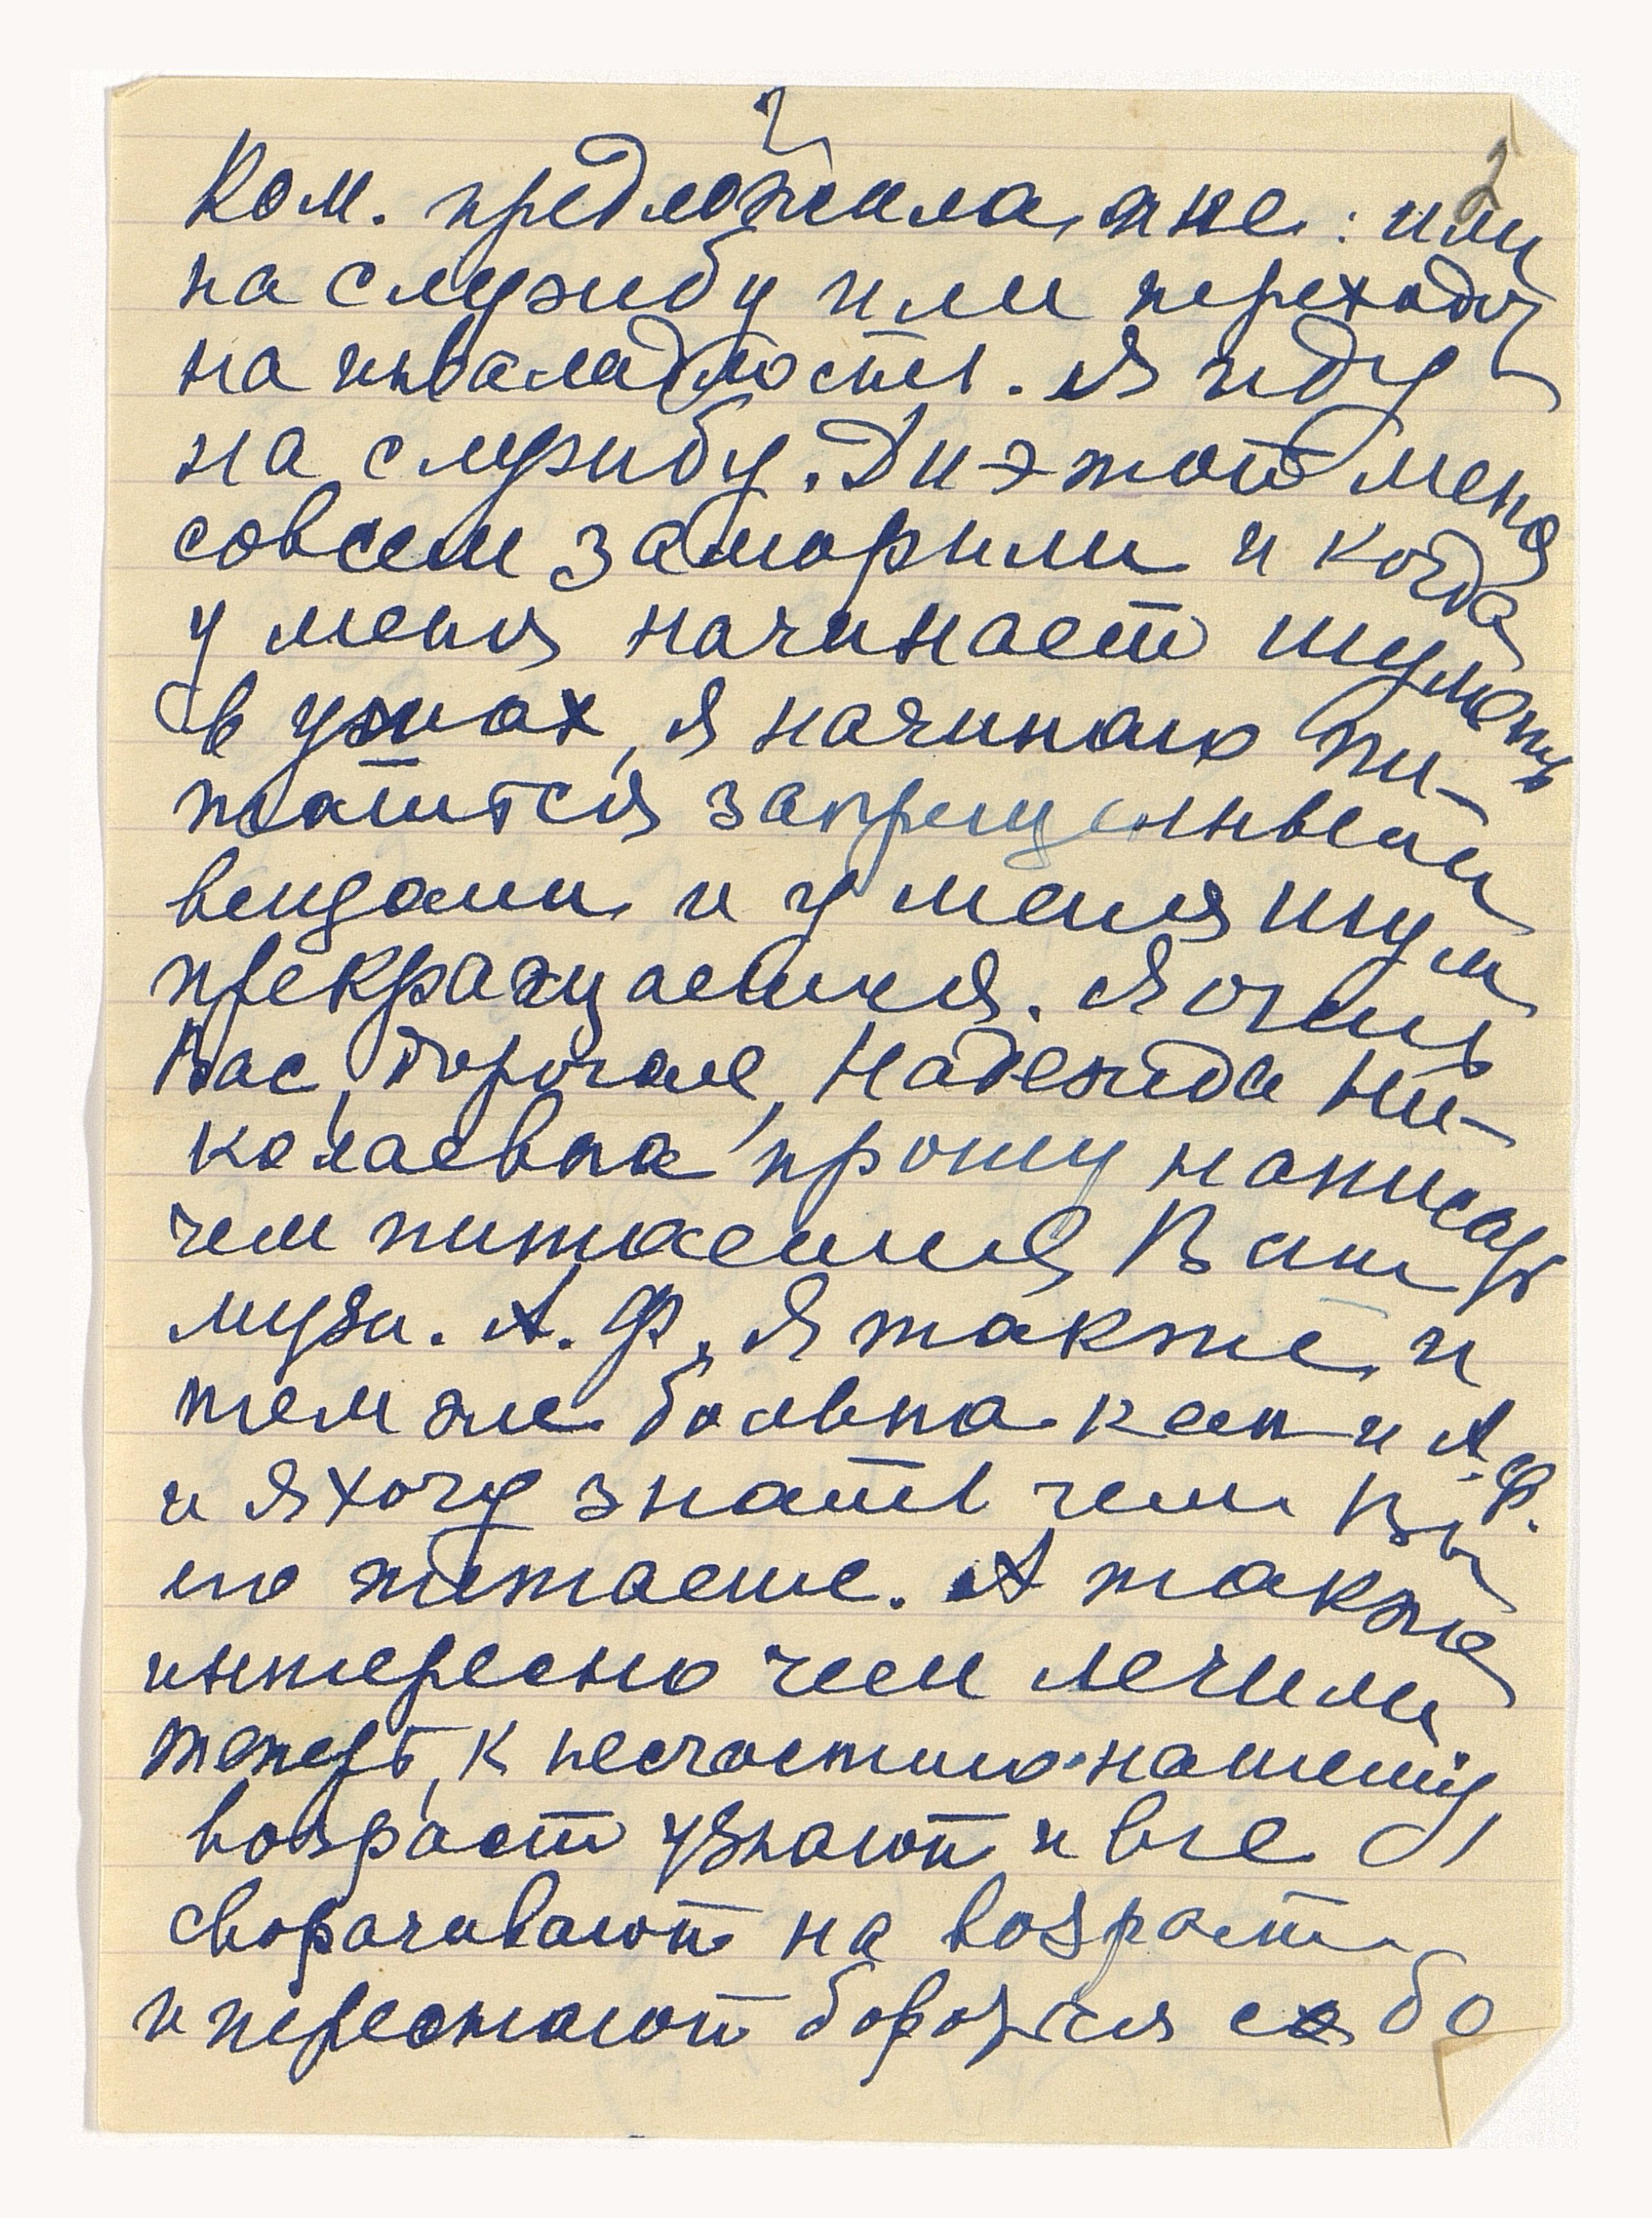 2
2
Ком. предложила мне: или
на службу или переходи
на инвалидность. Я иду
на службу. Диэтой меня
совсем заморили и когда
у меня начинает шуметь
в ушах, я начинаю пи-
таться запрещенными
вещами и у меня шум
прекращается. Я очень
Вас, дорогая, Надежда Ни-
колаевна прошу написать
чем питается Ваш
муж. А. Ф. Я также и
тем же больна как и А. Ф.
и я хочу знать чем Вы
его питаете. А также
интересно чем лечили
теперь, к несчастию нашему,
возраст узнают и все
сворачивают на возраст
и перестают бороться с бо